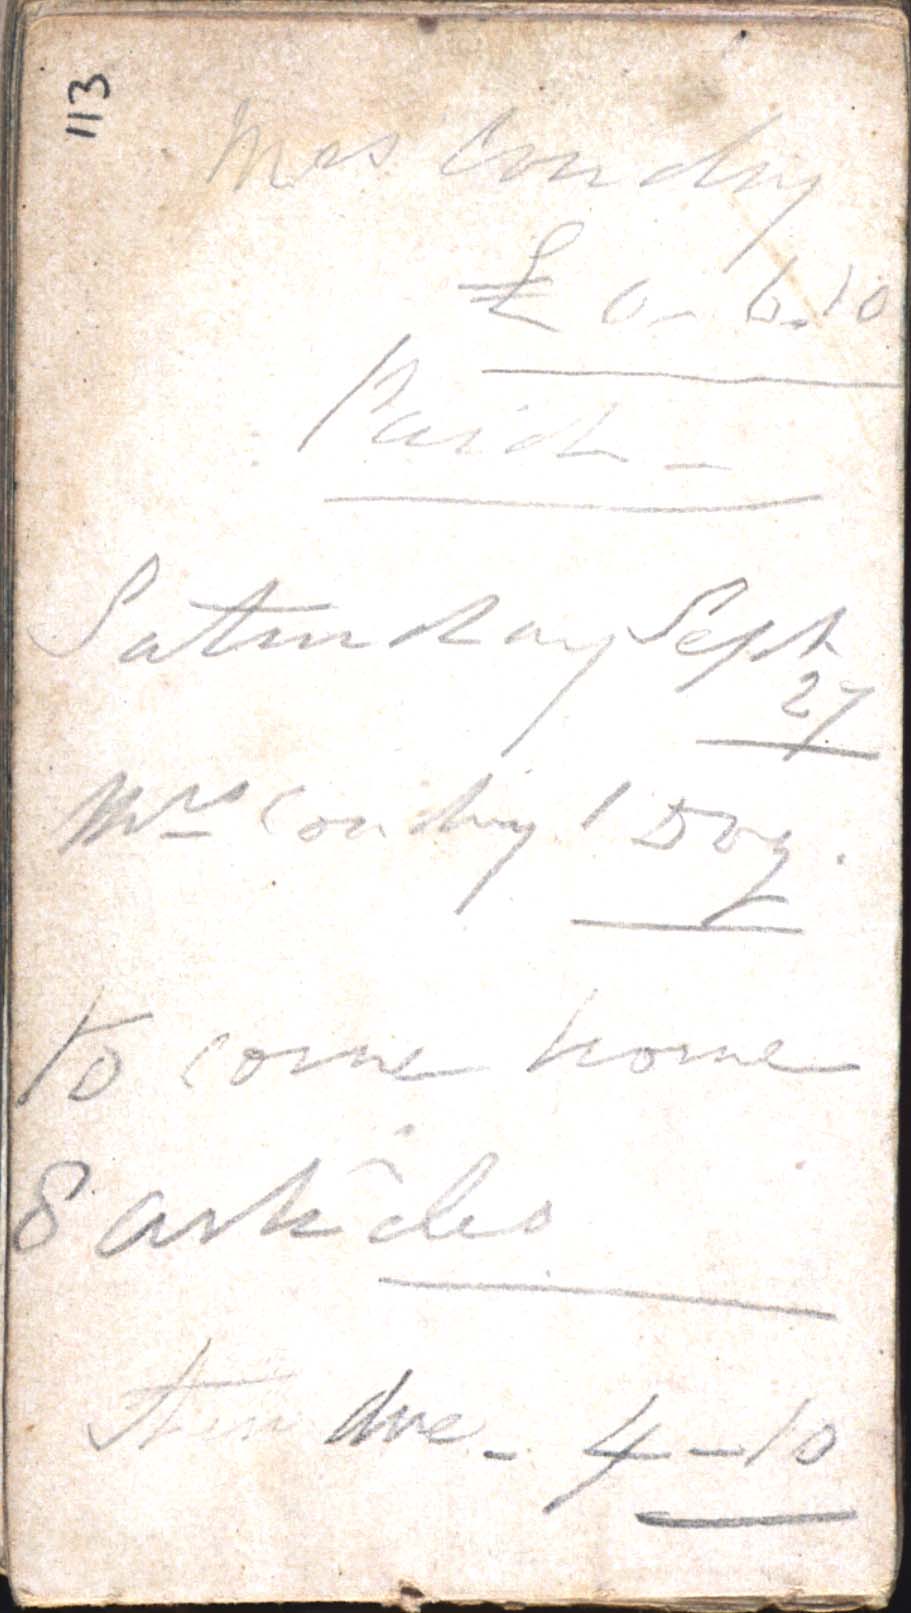 113
Mrs Condry
£ 0-6.10
Paid -
Saturday Sept
27
Mrs Condry 1 Doz.
to come home
8 articles
then due - 4-10